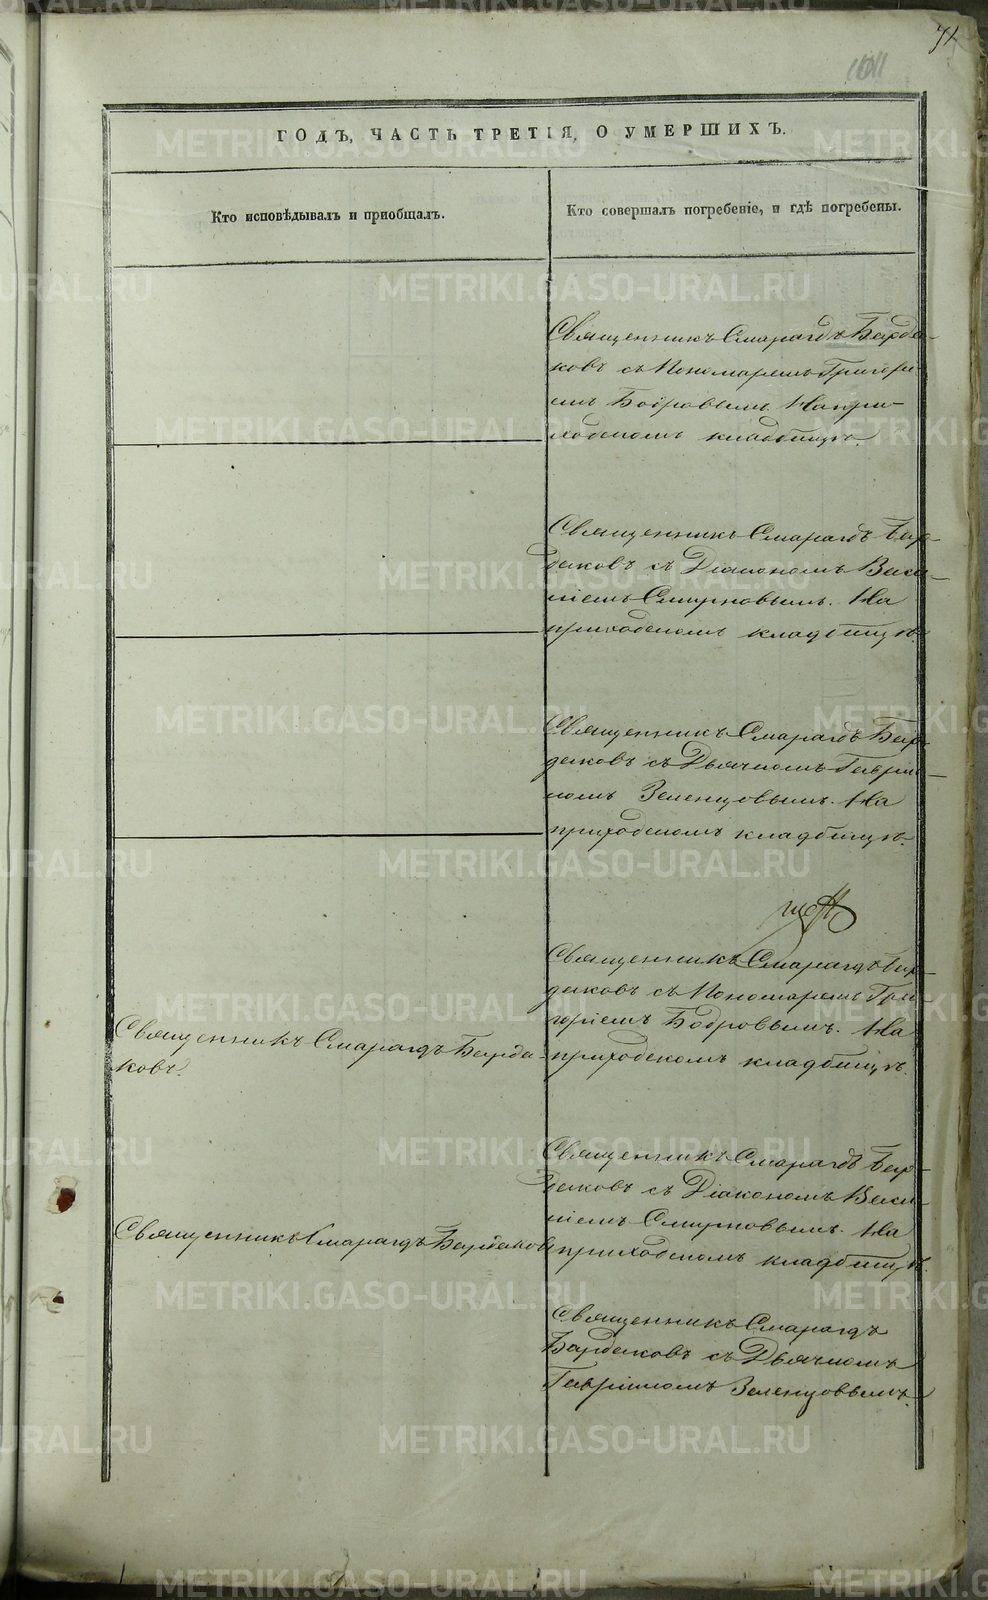 71
ГОДЪ, ЧАСТЬ ТРЕТІЯ, О УМЕРШИХЪ.
Кто исповѣдывалъ и пріобщалъ.
Кто совершалъ погребеніе, и гдѣ погребены.
Священникъ Смарагдъ Барда-
ковъ съ Пономаремъ Григорі-
емъ Бобровымъ. На при-
ходскомъ кладбищѣ.
Священникъ Смарагдъ Бар-
даковъ съ Діакономъ Васи-
ліемъ Смирновымъ. На
приходскомъ кладбищѣ.
Священникъ Смарагдъ Бар-
даковъ съ Дьячкомъ Гаврі-
ломъ Зеленцовымъ. На
приходскомъ кладбищѣ.
Священникъ Смарагдъ Барда-
ковъ.
Священникъ Смарагдъ Бар-
даковъ съ Пономаремъ Гри-
горіемъ Бобровымъ. На
приходскомъ кладбищѣ.
Священникъ Смарагдъ Бардаковъ
Священникъ Смарагдъ Бар-
даковъ съ Діакономъ Васи-
ліемъ Смирновымъ. На
приходскомъ кладбищѣ.
Священникъ Смарагдъ
Бардаковъ съ Дьячкомъ
Гавріиломъ Зеленцовымъ.
METRIKI.GASO-URAL.RU